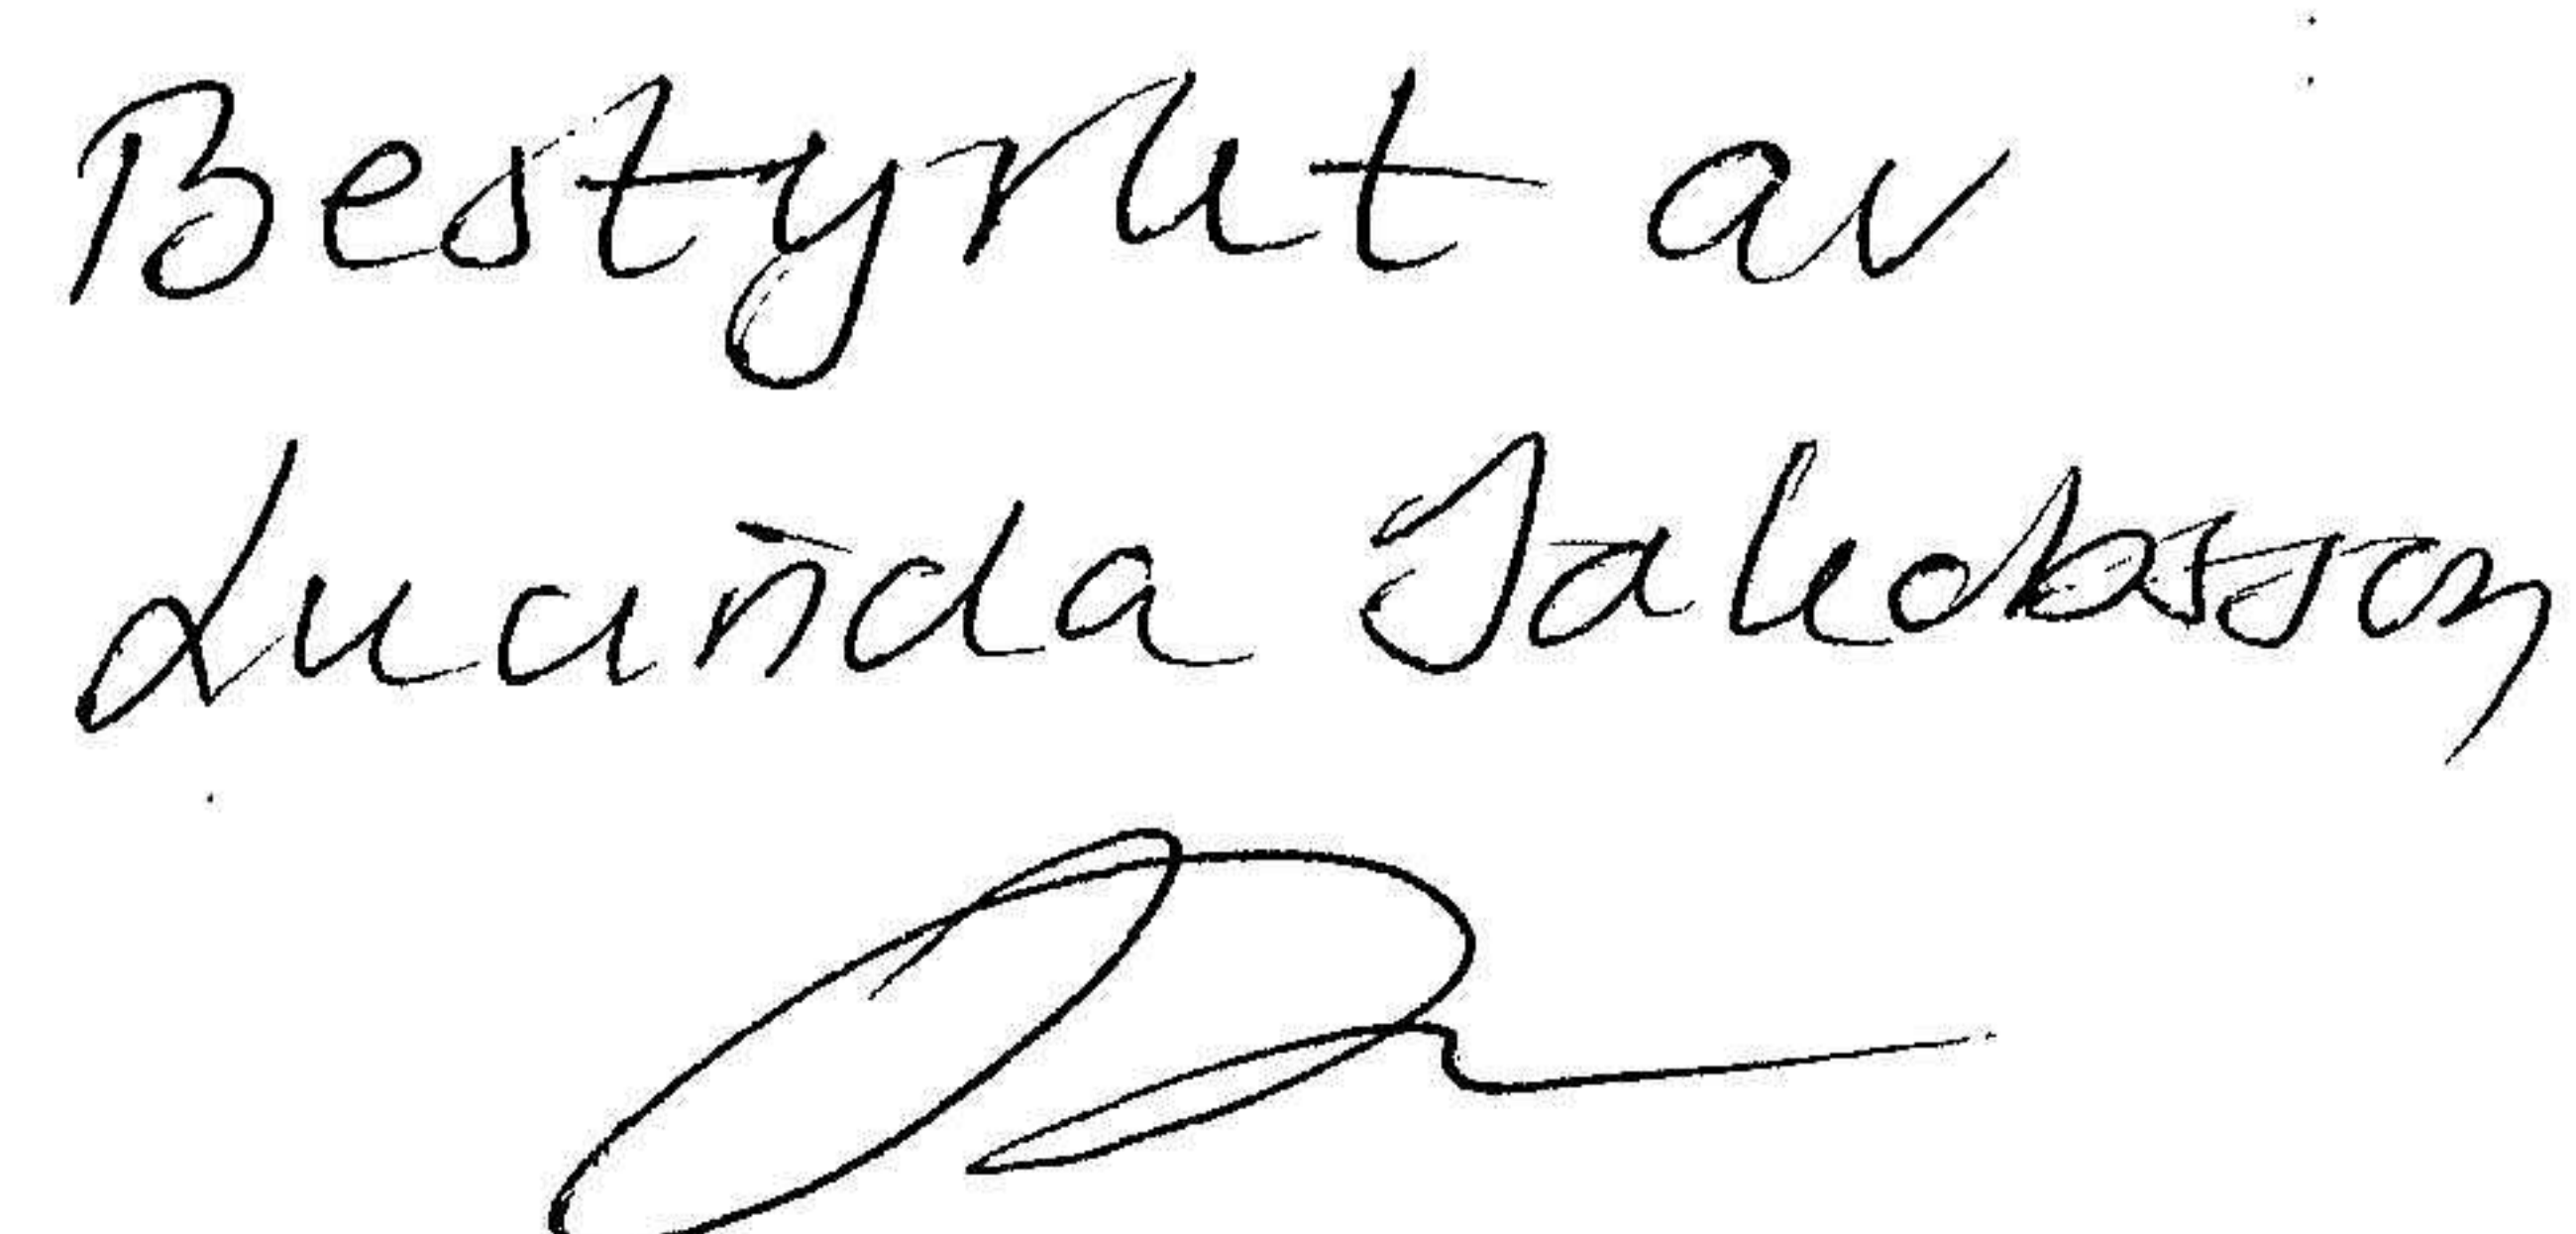 Bestyrkt av
Lucinda Jakobsson